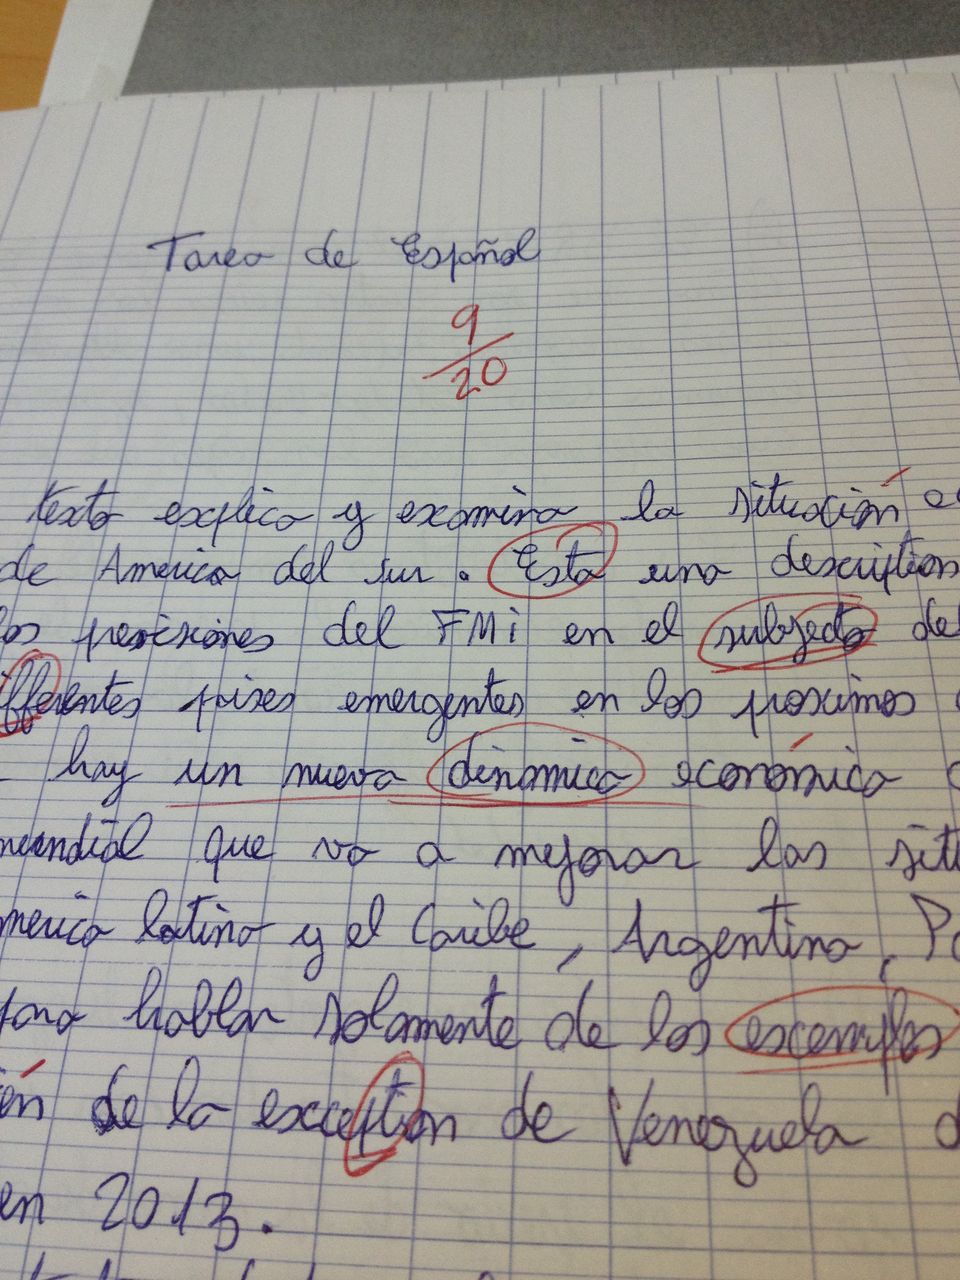 Tarea de Español
9/20
texto explica y examina la situación
de America del sur. Esta una description
los previsiones del FMi en el subjecto de
fferentes paises emergentes en los proximos
hay un nueva dinamica económica
mundial que va a mejorar las situ
merica latina y el Caribe, Argentina, P
para hablar solamente de los excemplos
én de la exception de Venezuela d
en 2013.